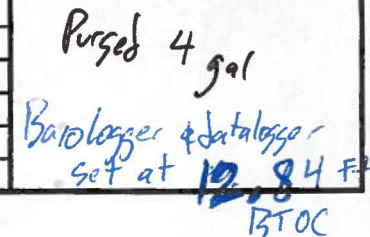 Purged 4 gal
Barologger & datalogger
set at 12.84 Ft
BTOC